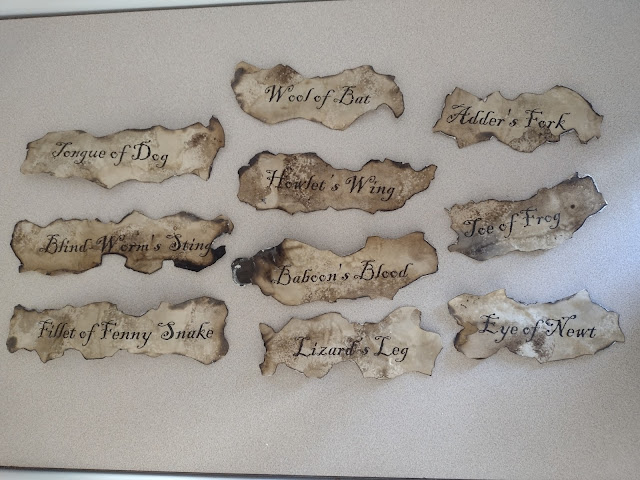 Tongue of Dog
Blind-Worm's Sting
Fillet of Fenny Snake
Wool of Bat
Howlet's Wing
Baboon's Blood
Lizard's Leg
Adder's Fork
Toe of Frog
Eye of Newt